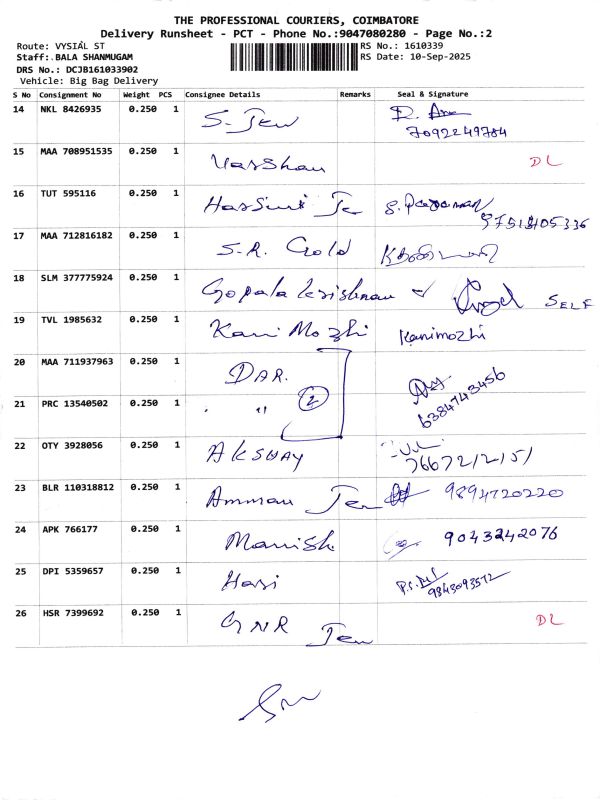 THE PROFESSIONAL COURIERS, COIMBATORE
Delivery Runsheet - PCT - Phone No.:9047080280 - Page No.:2
Route: VYSIAL ST RS No.: 1610339
Staff: BALA SHANMUGAM RS Date: 10-Sep-2025
DRS No.: DCJB161033902
Vehicle: Big Bag Delivery
S No Consignment No Weight PCS Consignee Details Remarks Seal & Signature
14 NKL 8426935 0.250 1 S. Jew
7092249784
15 MAA 708951535 0.250 1 Varshan DL
16 TUT 595116 0.250 1
17 MAA 712816182 0.250 1 S.R. Gold
18 SLM 377775924 0.250 1 Gopala Krishnan SELF
19 TVL 1985632 0.250 1 Kani Mozhi Kanimozhi
20 MAA 711937963 0.250 1 DAR.
6384743456
21 PRC 13540502 0.250 1 " 2
22 OTY 3928056 0.250 1 AKSHAY
7667212151
23 BLR 110318812 0.250 1 Amman Jew 9894720220
24 APK 766177 0.250 1 Manish 9043242076
25 DPI 5359657 0.250 1 Hari
9843093572
26 HSR 7399692 0.250 1 GNR Jew DL